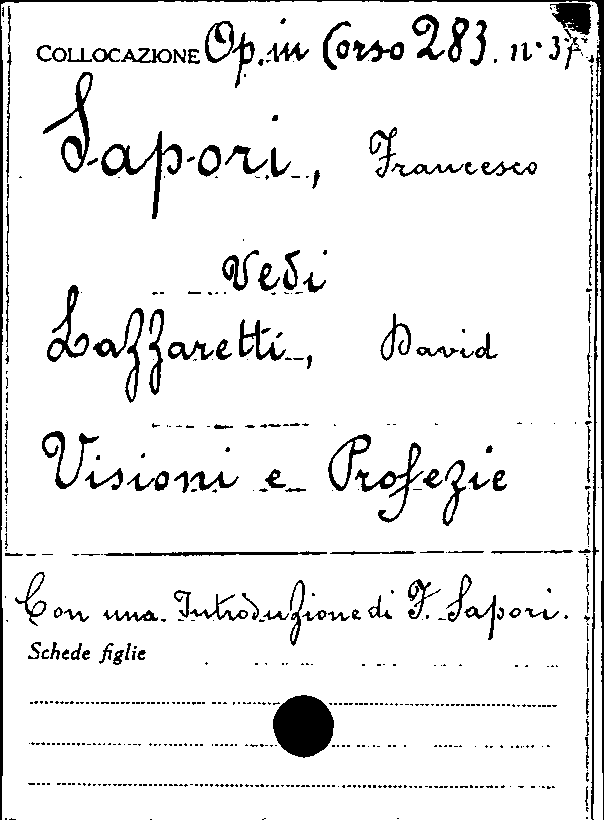 COLLOCAZIONE Op. in Corso 283. n° 37
Sapori, Francesco
Vedi
Lazzaretti, David
Visioni e Profezie
Con una Introduzione di F. Sapori.
Schede figlie